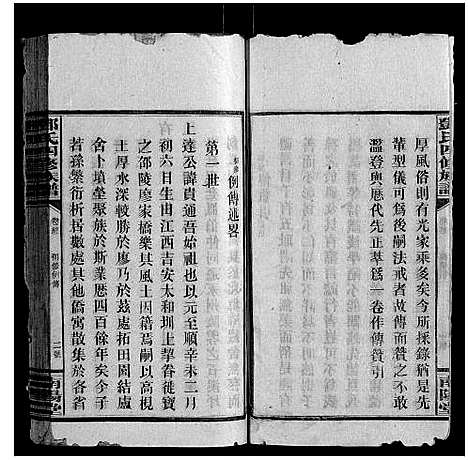 鄧氏四修族譜
厚風俗則有光家乘多矣今所採錄猶是先
輩型儀可為後嗣法戒者故傳而贊之不敢
濫登與歷代先正萃為一卷作傳贊引
南陽堂
例傳述畧
第一世
上達公諱貴通吾始祖也以元至順辛未二月
初六日生由江西吉安太和圳上挈眷徙寶
之邵陵廖家橋樂其風土因籍焉嗣以高梘
土厚水深較勝於廖乃於茲處拓田園結廬
舍卜墳塋聚族於斯業歷四百餘年矣今子
若孫繁衍析居數處其他僑寓散集於各省
鄧氏四修族譜
二號
南陽堂